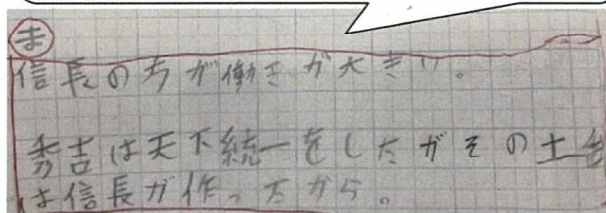 ま
信長のちが働きが大きい。
秀吉は天下統一をしたがその土台
は信長が作ったから。